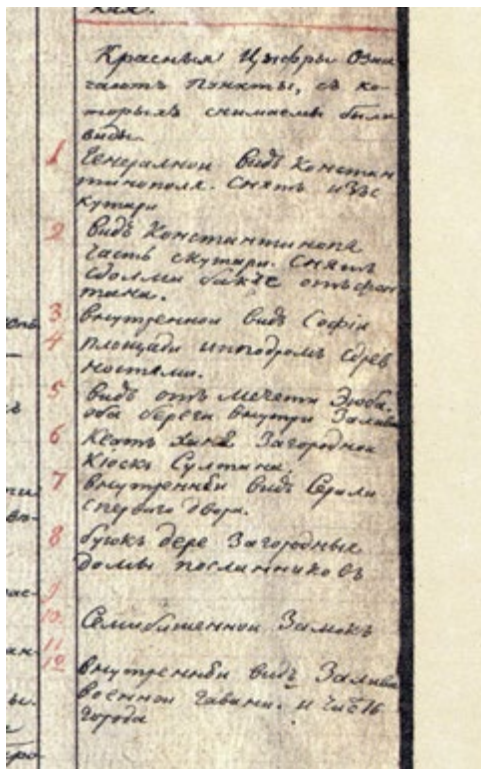 Красныя Цыфры Озна
чаютъ пункты, съ ко-
торыхъ снимаемы были
виды.
1 Генералной видъ Констан
тинополя. Снятъ изъ с
кутари
2 видъ Константинопя
часть скутари. Снятъ
сдолми бакче отъ фон
тана.
3 внутренной видъ Софіи
4 площади ипподромъ сдрев
ностями.
5 видъ отъ мечети Эюба.
оба берега внутри Залива
6 Загородной
Кіоскъ Султана.
7 внутренней видъ Серали
с перваго двора.
8 буюкъ дере Загородных
домы посланниковъ
9
10. Семибашенной Замокъ
11
12 внутренней видъ Залива
военной гавани. и часть
города